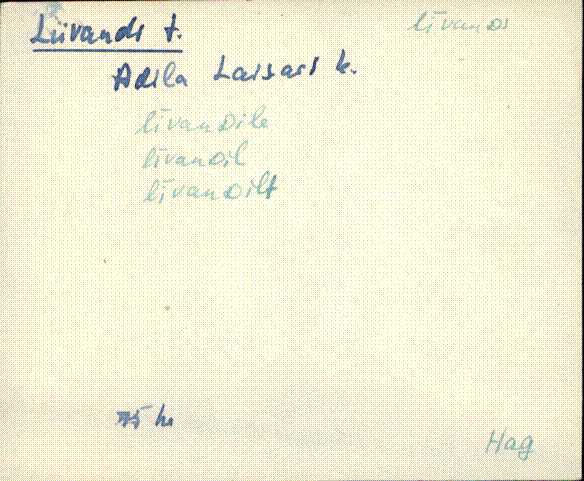 Liivandi t.
līvanDi
Adila Laisari k.
līvanDile
līvanDil
līvanDilt
Hag